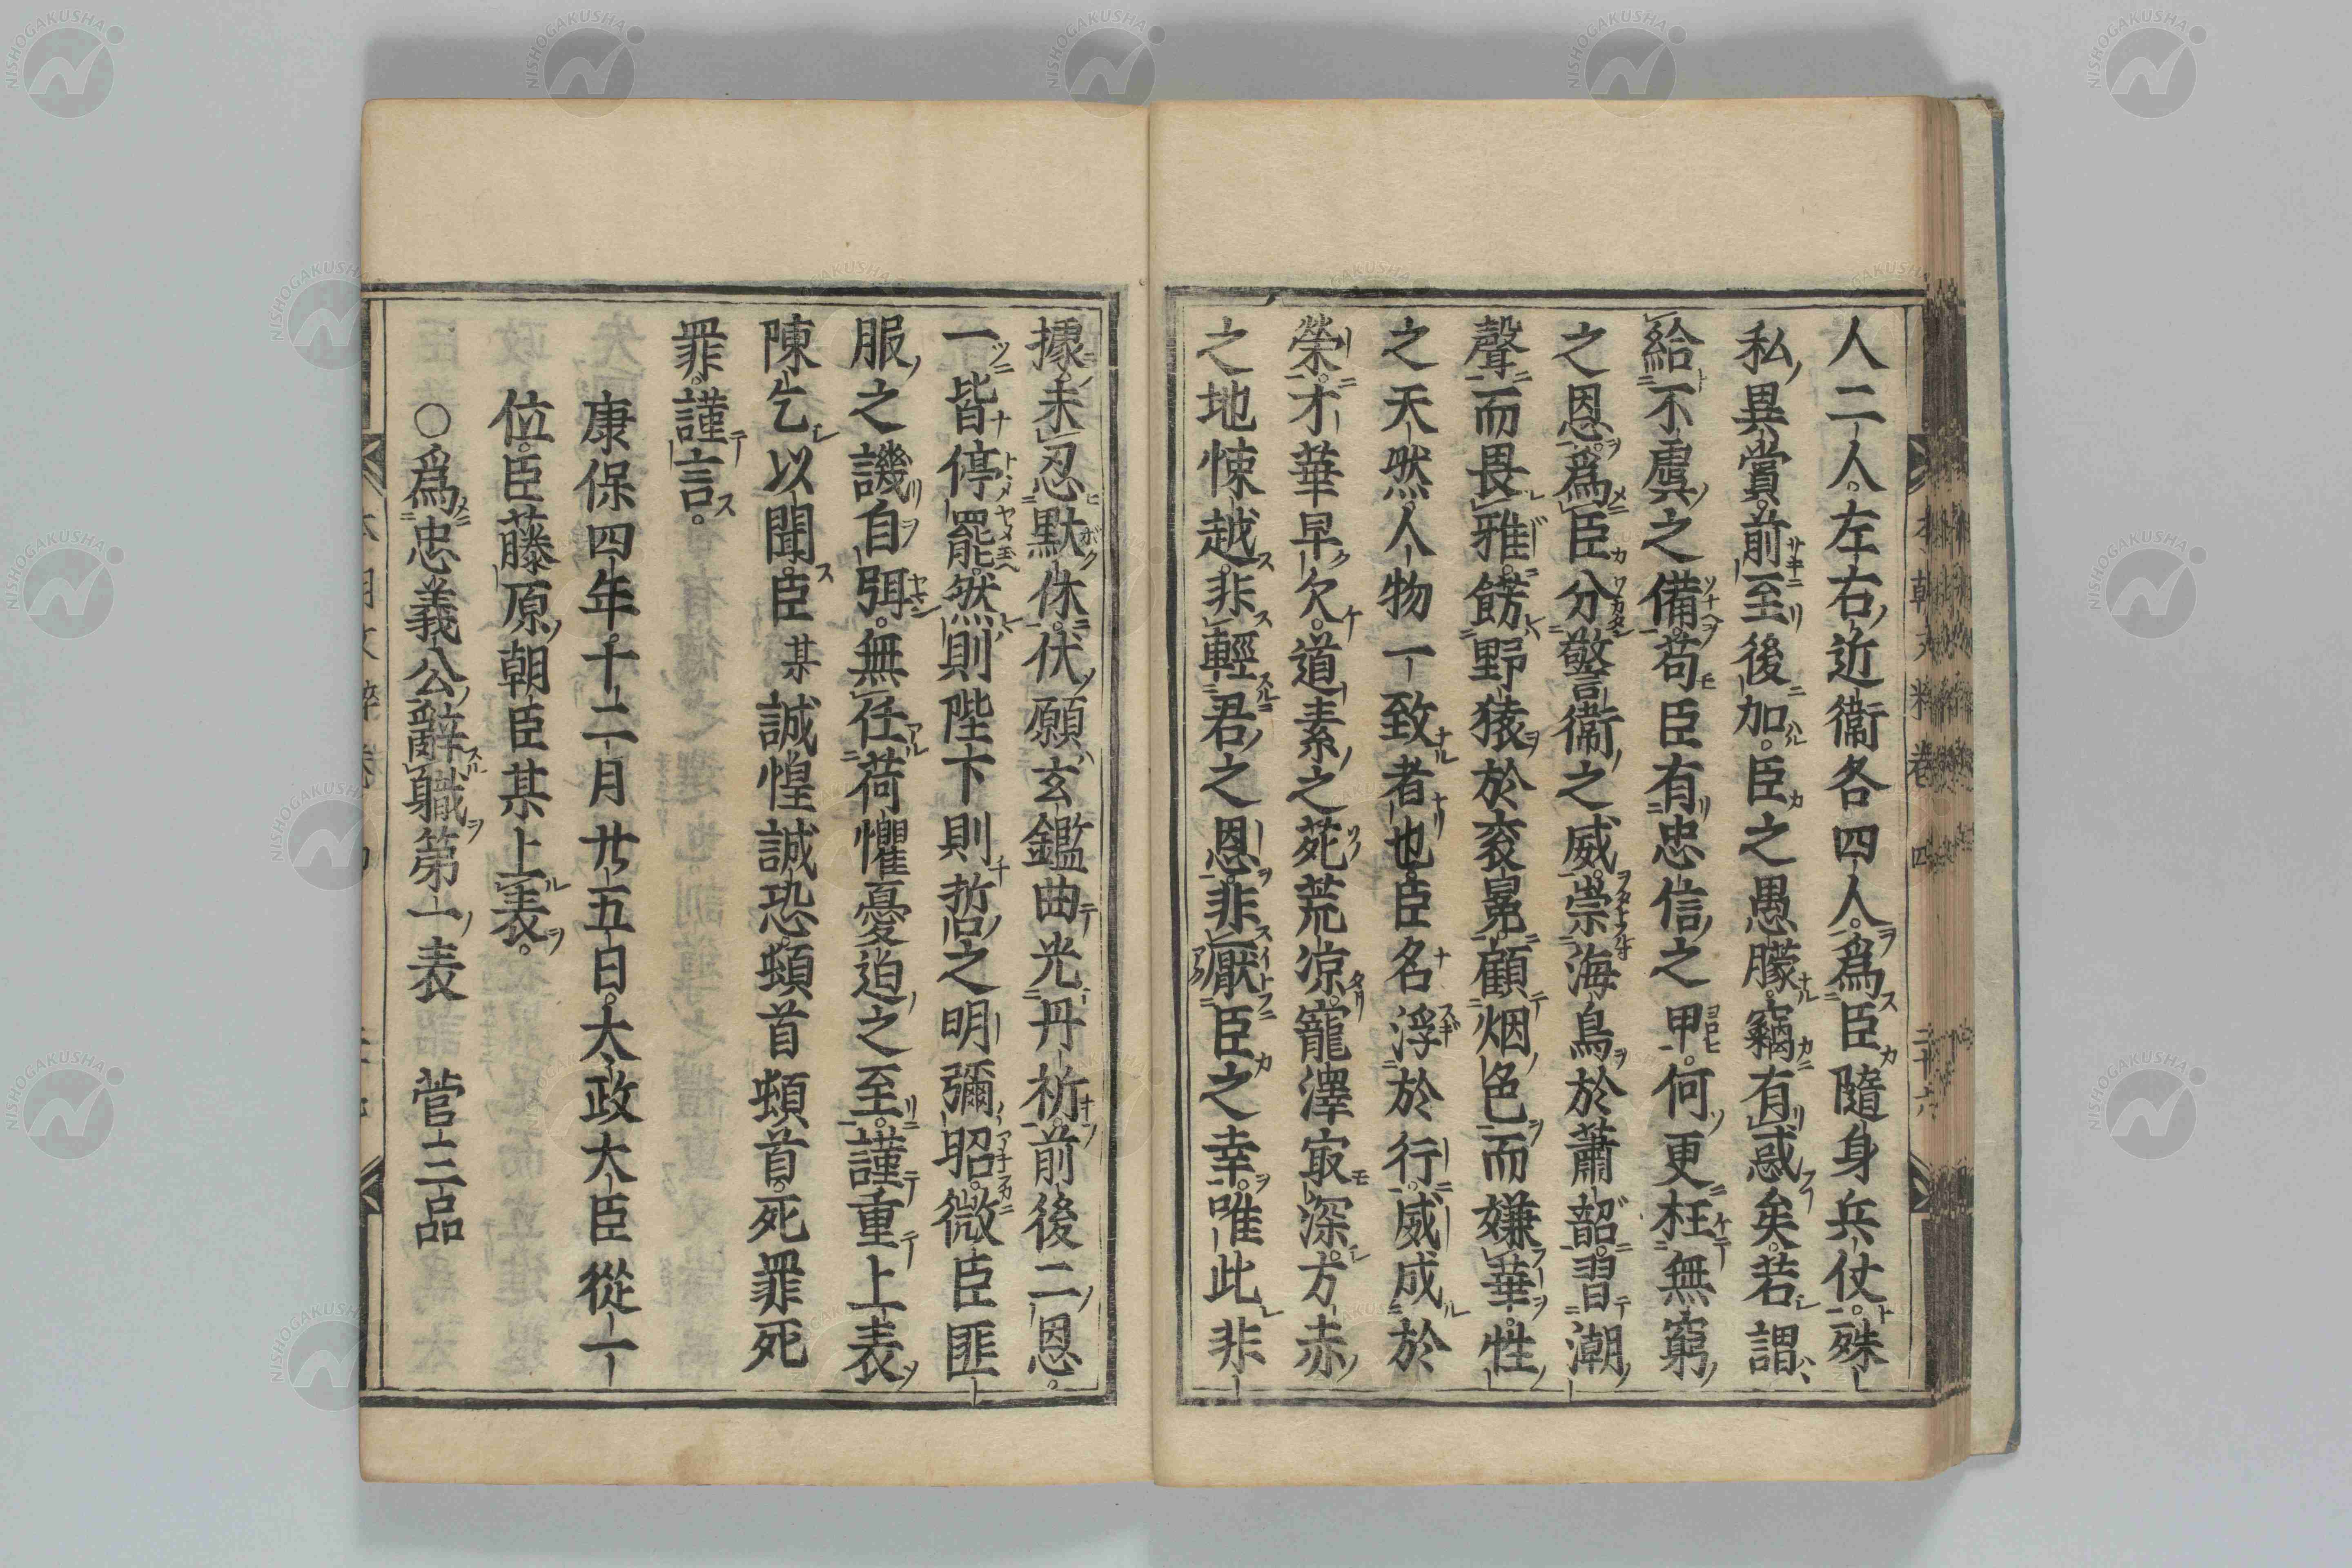 人二人。左右近衞各四人。爲臣隨身兵仗。殊
私異賞。前至後加。臣之愚朦。竊有惑矣。若謂
給不虞之備。苟臣有忠信之甲。何更枉無窮
之恩。爲臣分警衞之威。崇海鳥於蕭韶。習潮
聲而畏雅。餝野猿於衮冕。顧烟色而嫌華。性
之天然。人物一致者也。臣名浮於行。威成於
榮。才華早欠。道素之菀荒凉。寵澤㝡深。方赤
之地悚越。非輕君之恩。非厭臣之幸。唯此非
據。未忍默侏。伏願玄鑑曲光丹祈。前後二恩。
一皆停罷。然則陛下則哲之明彌昭。微臣匪
服之譏自弭。無任荷懼憂迫之至。謹重上表
陳乞以聞。臣某誠惶誠恐。頓首頓首。死罪死
罪。謹言。
康保四年。十二月廿五日。太政大臣從一
位。臣藤原朝臣某上表。
〇爲忠義公辭職第一表 菅三品
本朝文粹卷四
三十六